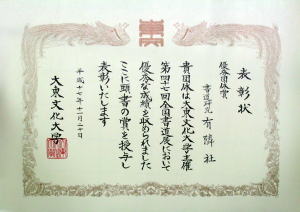 表彰状
優秀団体賞
書道研究 有隣社
貴団体は大東文化大学主催
第四十七回全国書道展において
優秀な成績を収められました
ここに頭書の賞を授与し
表彰いたします
平成十七年十一月二十日
大東文化大学